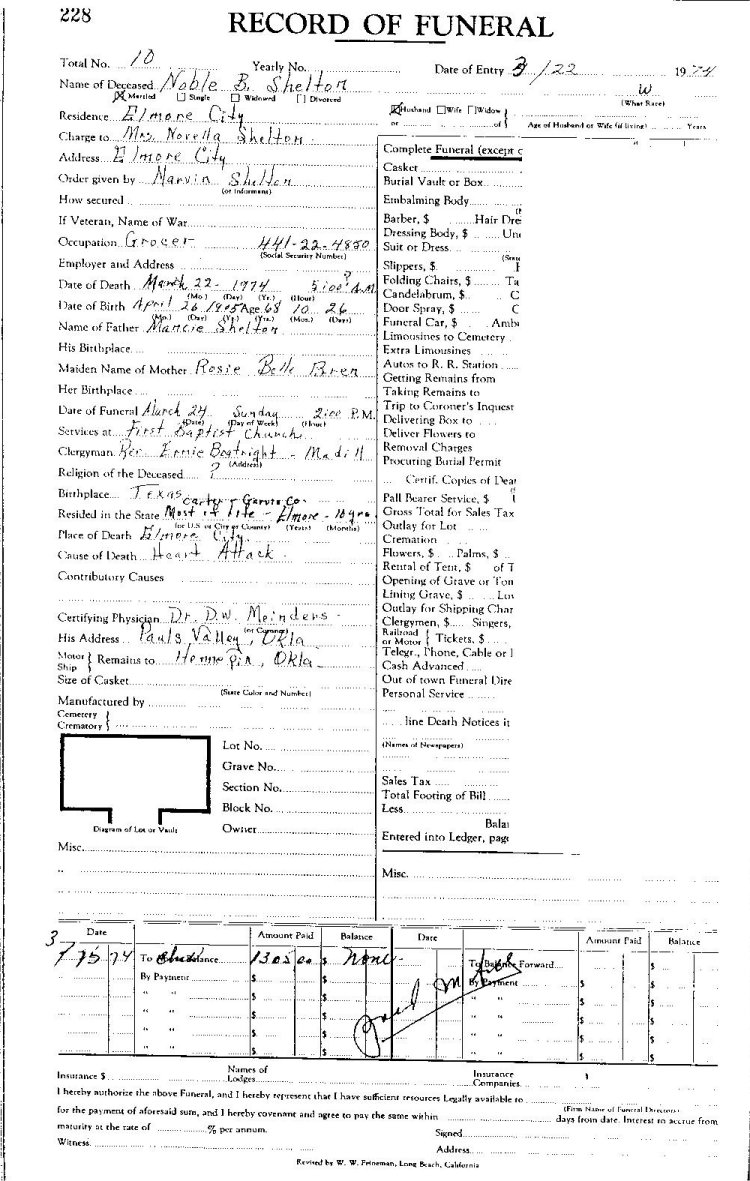 228
RECORD OF FUNERAL
Total No. 10 Yearly No. Date of Entry 3/22 1974
Name of Deceased Noble B. Shelton W
Married Single Widowed Divorced (What Race)
Residence Elmore City Husband Wife Widow
or of Age of Husband or Wife (if living) Years
Charge to Mrs. Novella Shelton
Address Elmore City
Order given by Marvin Shelton
(or Informant)
How secured
If Veteran, Name of War
Occupation Grocer 441-22-4880
(Social Security Number)
Employer and Address
Date of Death March 22 - 1974 5:00 ? A.M.
(Mo.) (Day) (Yr.) (Hour)
Date of Birth April 26 1905 Age 68 10 26
(Mo.) (Day) (Yr.) (Yrs.) (Mos.) (Days)
Name of Father Mancie Shelton
His Birthplace
Maiden Name of Mother Rosie Belle Bren
Her Birthplace
Date of Funeral March 24 Sunday 2:00 P.M.
(Date) (Day of Week) (Hour)
Services at First Baptist Church
Clergyman Rev. Ernie Boatright - Madill
(Address)
Religion of the Deceased ?
Birthplace Texas
Carter - Garvin Co.
Resided in the State Most of life - Elmore - 10 yrs.
(or U.S. or City or County) (Years) (Months)
Place of Death Elmore City
Cause of Death Heart Attack
Contributory Causes
Certifying Physician Dr. D.W. Meinders
(or Coroner)
His Address Pauls Valley, Okla
Motor Ship } Remains to Hennepin, Okla
Size of Casket
(State Color and Number)
Manufactured by
Cemetery
Crematory
Lot No.
Grave No.
Section No.
Block No.
Owner
Diagram of Lot or Vault
Misc.
Complete Funeral (except c
Casket
Burial Vault or Box
Embalming Body
Barber, $ Hair Dre
Dressing Body, $ Un
Suit or Dress
Slippers, $
Folding Chairs, $ Ta
Candelabrum, $ C
Door Spray, $ C
Funeral Car, $ Amb
Limousines to Cemetery
Extra Limousines
Autos to R. R. Station
Getting Remains from
Taking Remains to
Trip to Coroner's Inquest
Delivering Box to
Deliver Flowers to
Removal Charges
Procuring Burial Permit
Certif. Copies of Dea
Pall Bearer Service, $
Gross Total for Sales Tax
Outlay for Lot
Cremation
Flowers, $ Palms, $
Rental of Tent, $ of T
Opening of Grave or Tom
Lining Grave, $ Lo
Outlay for Shipping Char
Clergymen, $ Singers,
Railroad or Motor { Tickets, $
Telegr., Phone, Cable or
Cash Advanced
Out of town Funeral Dire
Personal Service
line Death Notices i
(Names of Newspapers)
Sales Tax
Total Footing of Bill
Less
Bala
Entered into Ledger, page
Misc.
Date Amount Paid Balance Date Amount Paid Balance
3 75 74 To Balance 1305 00 $ None To Balance Forward $
By Payment $ $ By Payment $ $
" " $ $ " " $ $
" " $ $ " " $ $
" " $ $ " " $ $
" " $ $ " " $ $
Paid
Insurance $ Names of Lodges Insurance Companies
I hereby authorize the above Funeral, and I hereby represent that I have sufficient resources Legally available to
(Firm Name of Funeral Directors)
for the payment of aforesaid sum, and I hereby covenant and agree to pay the same within days from date. Interest to accrue from
maturity at the rate of % per annum. Signed
Witness Address
Revised by W. W. Feineman, Long Beach, California